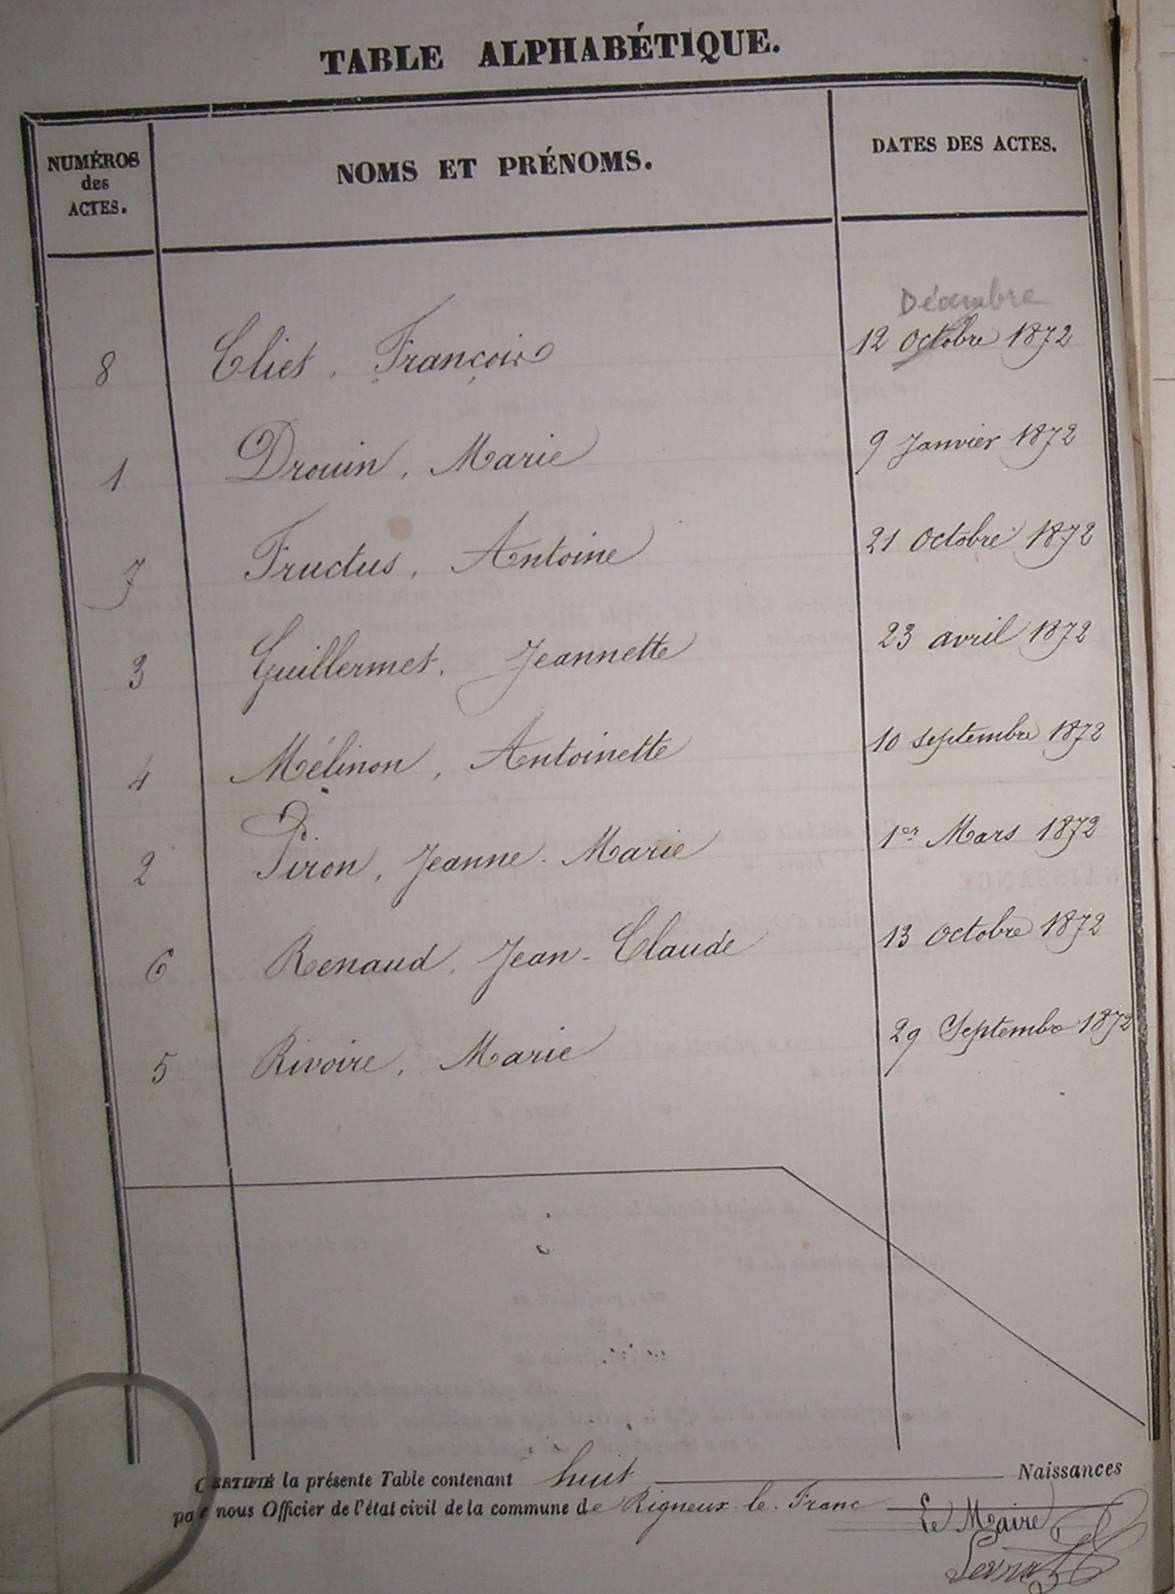 TABLE ALPHABÉTIQUE.
NUMÉROS des ACTES. NOMS ET PRÉNOMS. DATES DES ACTES.
Décembre
8 Cliet, François 12 Octobre 1872
1 Drouin, Marie 9 Janvier 1872
7 Fructus, Antoine 21 Octobre 1872
3 Guillermet, Jeannette 23 avril 1872
4 Mélinon, Antoinette 10 septembre 1872
2 Piron, Jeanne-Marie 1er Mars 1872
6 Renaud, Jean-Claude 13 Octobre 1872
5 Rivoire, Marie 29 Septembre 1872
CERTIFIÉ la présente Table contenant huit Naissances
par nous Officier de l'état civil de la commune de Rigneux-le-Franc Le Maire